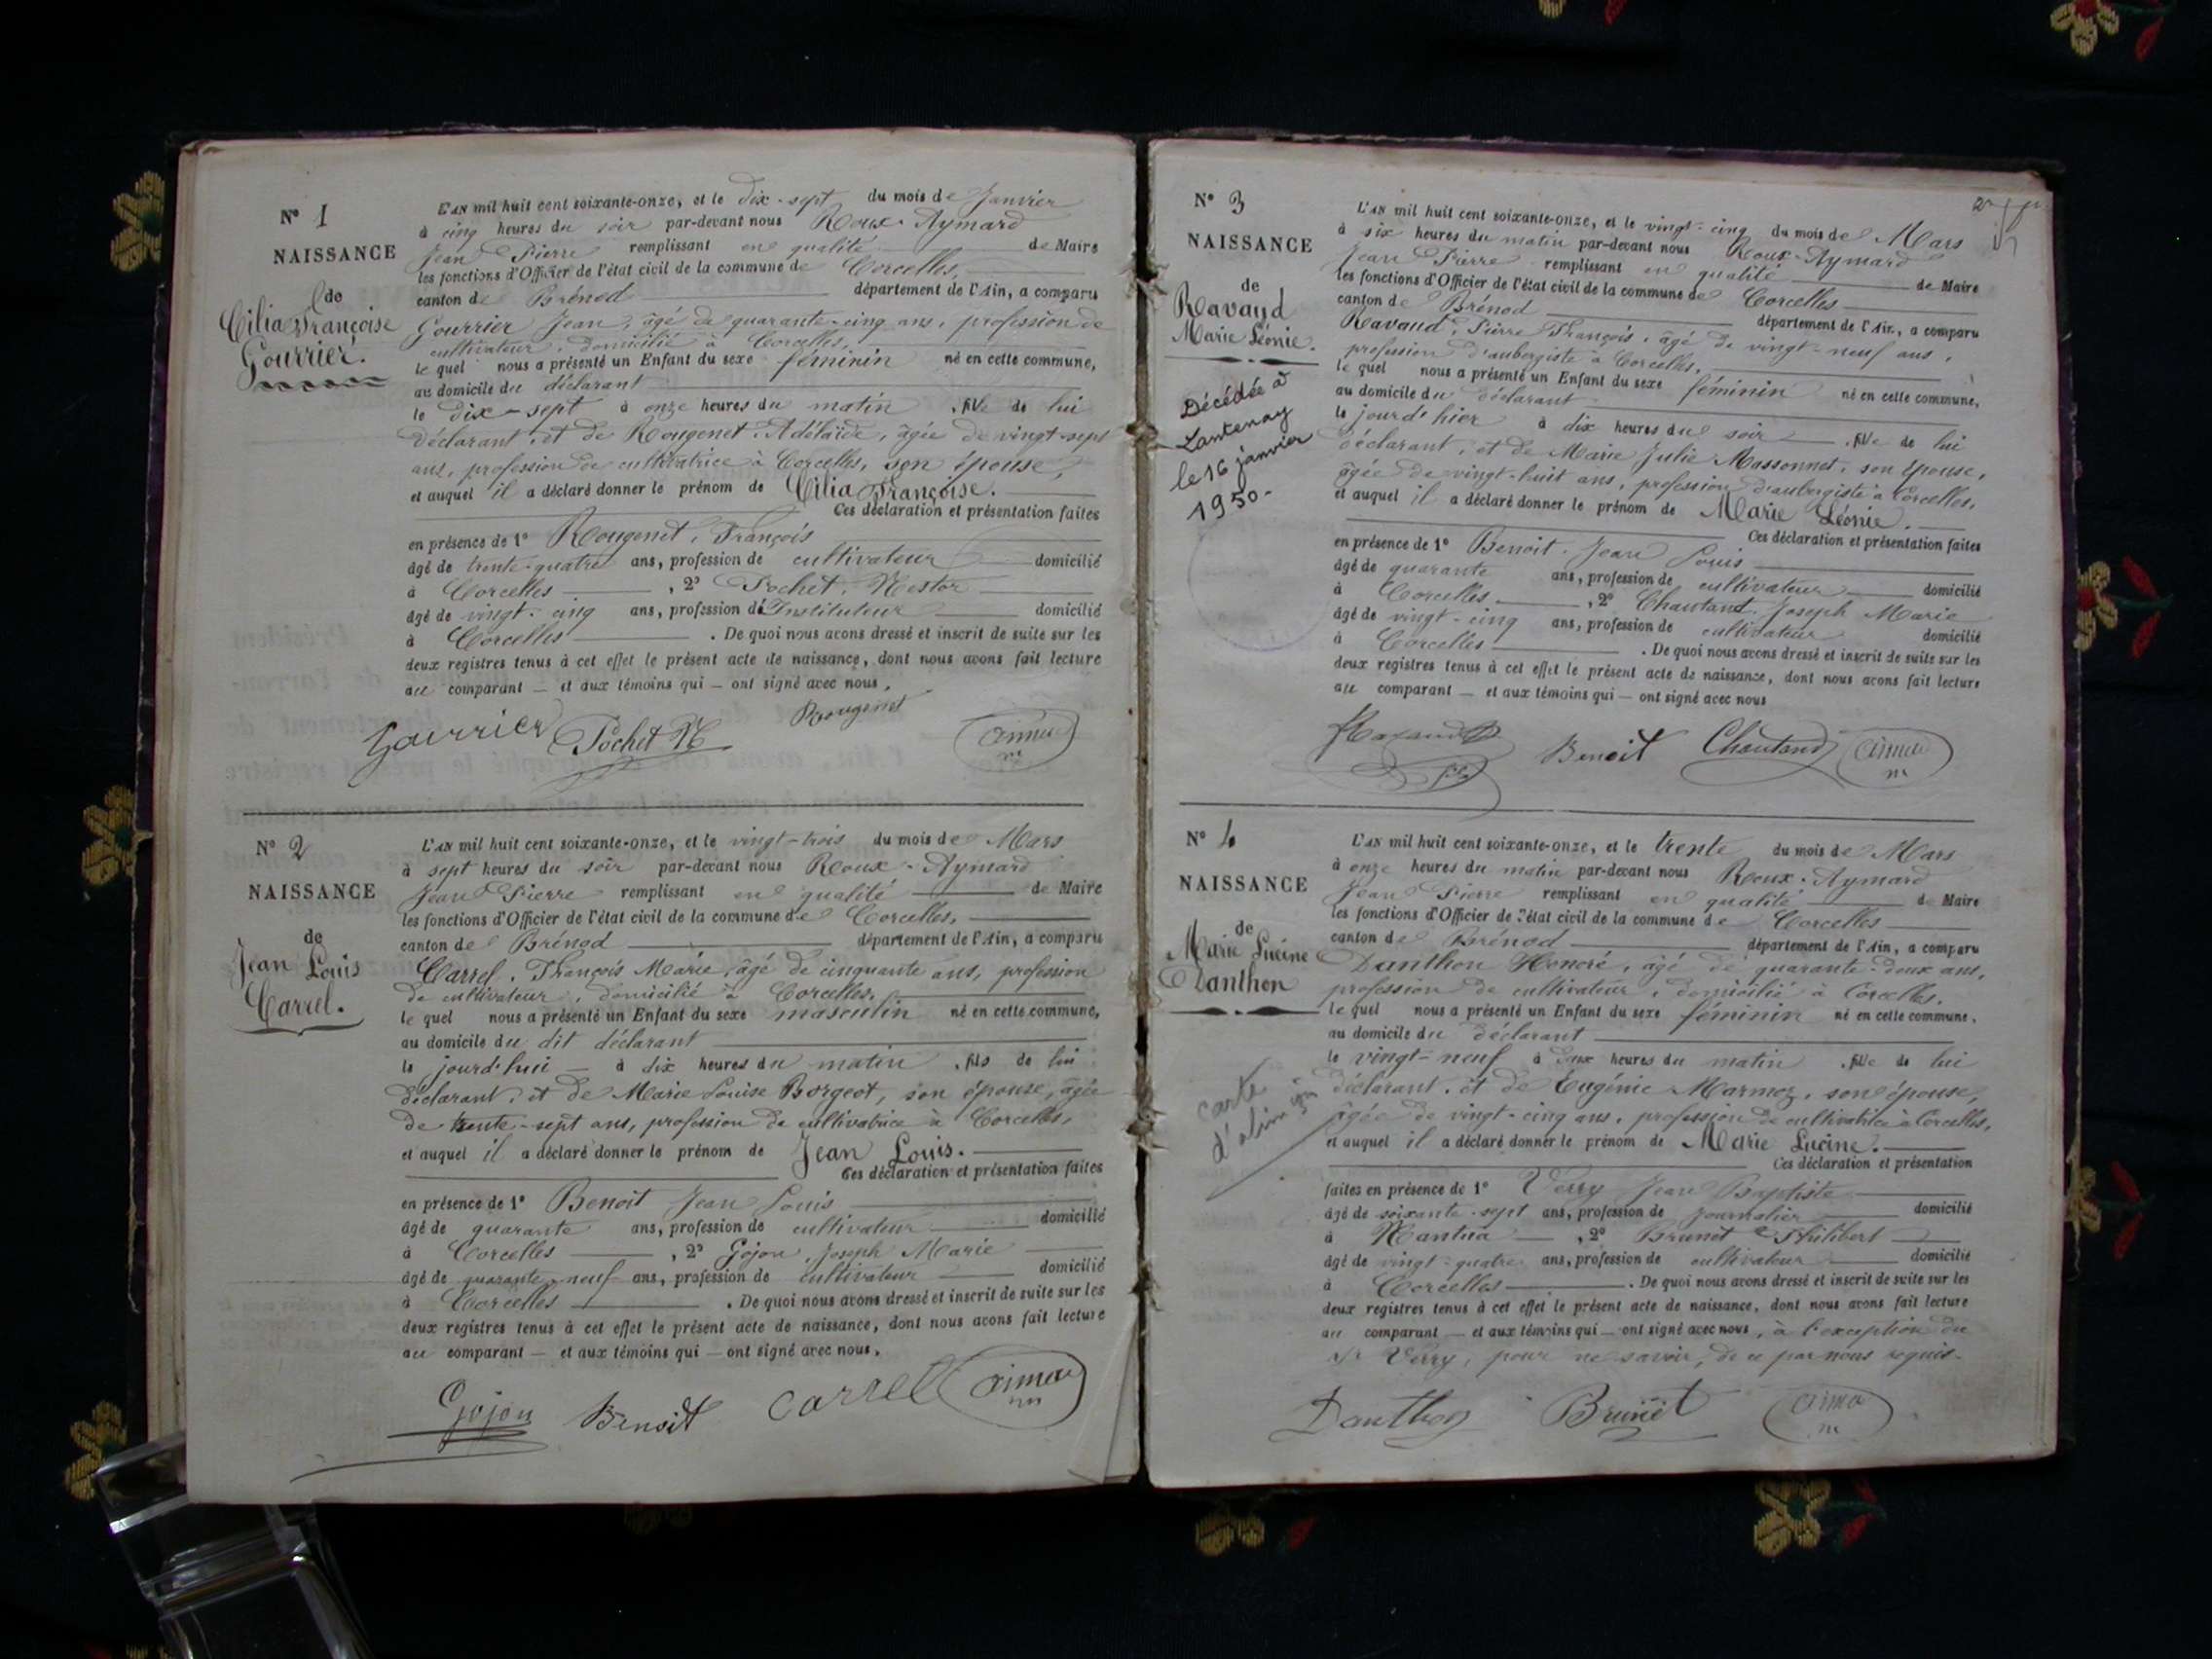 N° 1
NAISSANCE
de
Cilia Françoise
Gourrier.
L'AN mil huit cent soixante-onze, et le dix-sept du mois de Janvier
à cinq heures du soir par-devant nous Roux-Aymard
Jean Pierre remplissant en qualité de Maire
les fonctions d'Officier de l'état civil de la commune de Corcelles,
canton de Brénod département de l'Ain, a comparu
Gourrier Jean, âgé de quarante-cinq ans, profession de
cultivateur, domicilié à Corcelles,
le quel nous a présenté un Enfant du sexe féminin né en cette commune,
au domicile du déclarant
le dix-sept à onze heures du matin, fille de lui
déclarant, et de Rougenet Adélaïde, âgée de vingt-sept
ans, profession de cultivatrice à Corcelles, son épouse,
et auquel il a déclaré donner le prénom de Cilia Françoise.
Ces déclaration et présentation faites
en présence de 1° Rougenet, François
âgé de trente-quatre ans, profession de cultivateur domicilié
à Corcelles, 2° Pochet, Nestor
âgé de vingt-cinq ans, profession d'Instituteur domicilié
à Corcelles. De quoi nous avons dressé et inscrit de suite sur les
deux registres tenus à cet effet le présent acte de naissance, dont nous avons fait lecture
au comparant — et aux témoins qui — ont signé avec nous,
Gourrier Pochet N Rougenet
N° 2
NAISSANCE
de
Jean Louis
Carrel.
L'AN mil huit cent soixante-onze, et le vingt-trois du mois de Mars
à sept heures du soir par-devant nous Roux-Aymard
Jean Pierre remplissant en qualité de Maire
les fonctions d'Officier de l'état civil de la commune de Corcelles,
canton de Brénod département de l'Ain, a comparu
Carrel, François Marie, âgé de cinquante ans, profession
de cultivateur, domicilié à Corcelles,
le quel nous a présenté un Enfant du sexe masculin né en cette commune,
au domicile du dit déclarant
le jourd'hui — à dix heures du matin, fils de lui
déclarant, et de Marie Louise Borgeot, son épouse, âgée
de trente-sept ans, profession de cultivatrice à Corcelles,
et auquel il a déclaré donner le prénom de Jean Louis.
Ces déclaration et présentation faites
en présence de 1° Benoit Jean Louis
âgé de quarante ans, profession de cultivateur domicilié
à Corcelles, 2° Gojon, Joseph Marie
âgé de quarante-neuf ans, profession de cultivateur domicilié
à Corcelles. De quoi nous avons dressé et inscrit de suite sur les
deux registres tenus à cet effet le présent acte de naissance, dont nous avons fait lecture
au comparant — et aux témoins qui — ont signé avec nous.
Gojon Benoit Carrel
N° 3
NAISSANCE
de
Ravaud
Marie Léonie.
Décédée à
Lantenay
le 16 janvier
1950-
L'AN mil huit cent soixante-onze, et le vingt-cinq du mois de Mars
à six heures du matin par-devant nous Roux-Aymard
Jean Pierre remplissant en qualité de Maire
les fonctions d'Officier de l'état civil de la commune de Corcelles
canton de Brénod département de l'Ain, a comparu
Ravaud, Pierre François, âgé de vingt-neuf ans,
profession d'aubergiste à Corcelles,
le quel nous a présenté un Enfant du sexe féminin né en cette commune,
au domicile du déclarant
le jourd'hier à dix heures du soir, fille de lui
déclarant, et de Marie Julie Massonnet, son épouse,
âgée de vingt-huit ans, profession d'aubergiste à Corcelles,
et auquel il a déclaré donner le prénom de Marie Léonie.
Ces déclaration et présentation faites
en présence de 1° Benoit, Jean Louis
âgé de quarante ans, profession de cultivateur domicilié
à Corcelles, 2° Chautand, Joseph Marie
âgé de vingt-cinq ans, profession de cultivateur domicilié
à Corcelles. De quoi nous avons dressé et inscrit de suite sur les
deux registres tenus à cet effet le présent acte de naissance, dont nous avons fait lecture
au comparant — et aux témoins qui — ont signé avec nous
Ravaud Benoit Chautand
N° 4
NAISSANCE
de
Marie Lucine
Danthon
carte
L'AN mil huit cent soixante-onze, et le trente du mois de Mars
à onze heures du matin par-devant nous Roux-Aymard
Jean Pierre remplissant en qualité de Maire
les fonctions d'Officier de l'état civil de la commune de Corcelles
canton de Brénod département de l'Ain, a comparu
Danthon Honoré, âgé de quarante-deux ans,
profession de cultivateur, domicilié à Corcelles.
le quel nous a présenté un Enfant du sexe féminin né en cette commune,
au domicile du déclarant
le vingt-neuf à deux heures du matin, fille de lui
déclarant, et de Eugénie Marmoz, son épouse,
âgée de vingt-cinq ans, profession de cultivatrice à Corcelles,
et auquel il a déclaré donner le prénom de Marie Lucine.
Ces déclaration et présentation
faites en présence de 1° Verry Jean Baptiste
âgé de soixante-sept ans, profession de journalier domicilié
à Nantua, 2° Brunet Philibert
âgé de vingt-quatre ans, profession de cultivateur domicilié
à Corcelles. De quoi nous avons dressé et inscrit de suite sur les
deux registres tenus à cet effet le présent acte de naissance, dont nous avons fait lecture
au comparant — et aux témoins qui — ont signé avec nous, à l'exception du
Sr Verry, pour ne savoir, de ce par nous requis.
Danthon Brunet